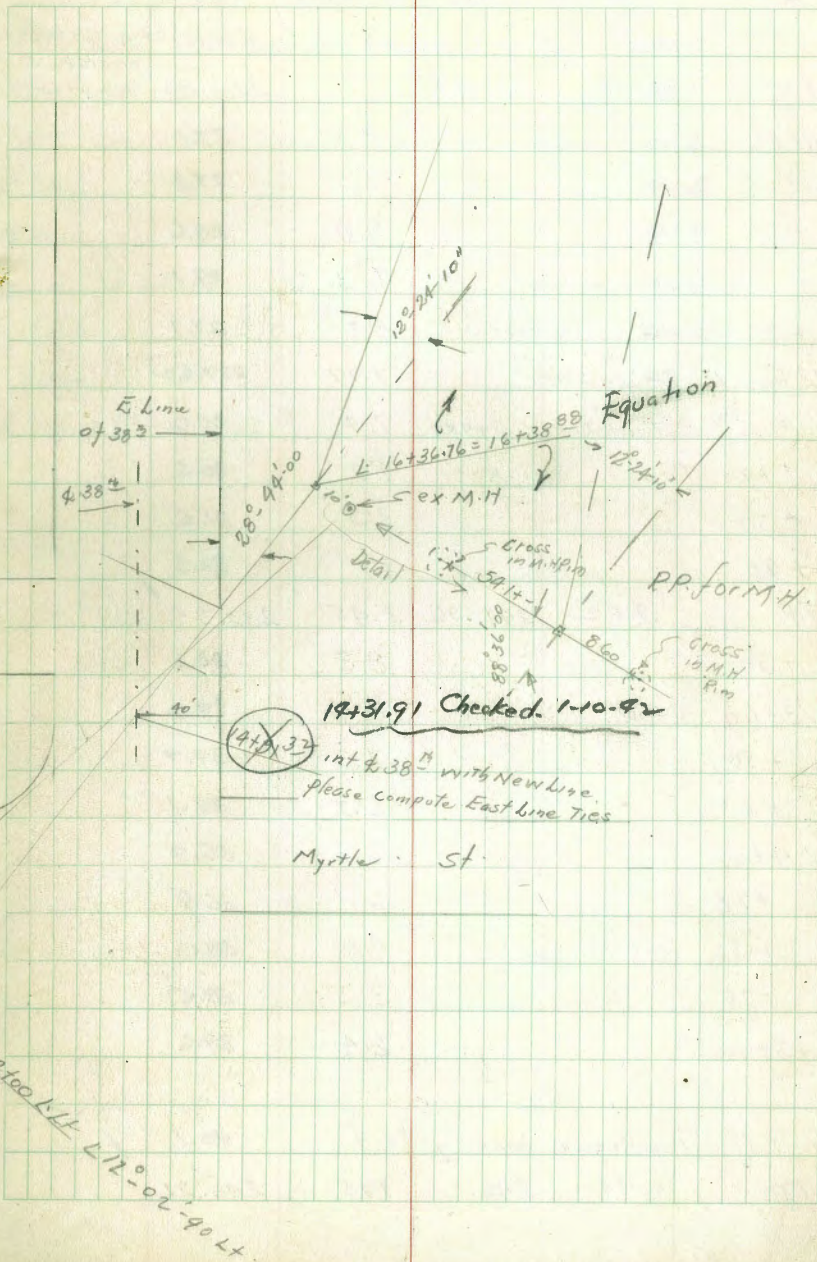 12°-24'-10"
E Line
of 38th
Equation
L 16+36.76 = 16+38 88
12°-24'-10"
₵ 38th
28°-44'-00
10'
ex M.H
Cross
in M.H Rim
Detail
541+-
P.P. for M.H.
88°36'00
860
Cross
in M.H
Rim
40'
14+31.91 Checked- 1-10-42
int ₵ 38th with New Line
please compute East Line Ties
Myrtle St.
L 12°-02'-40 Lt